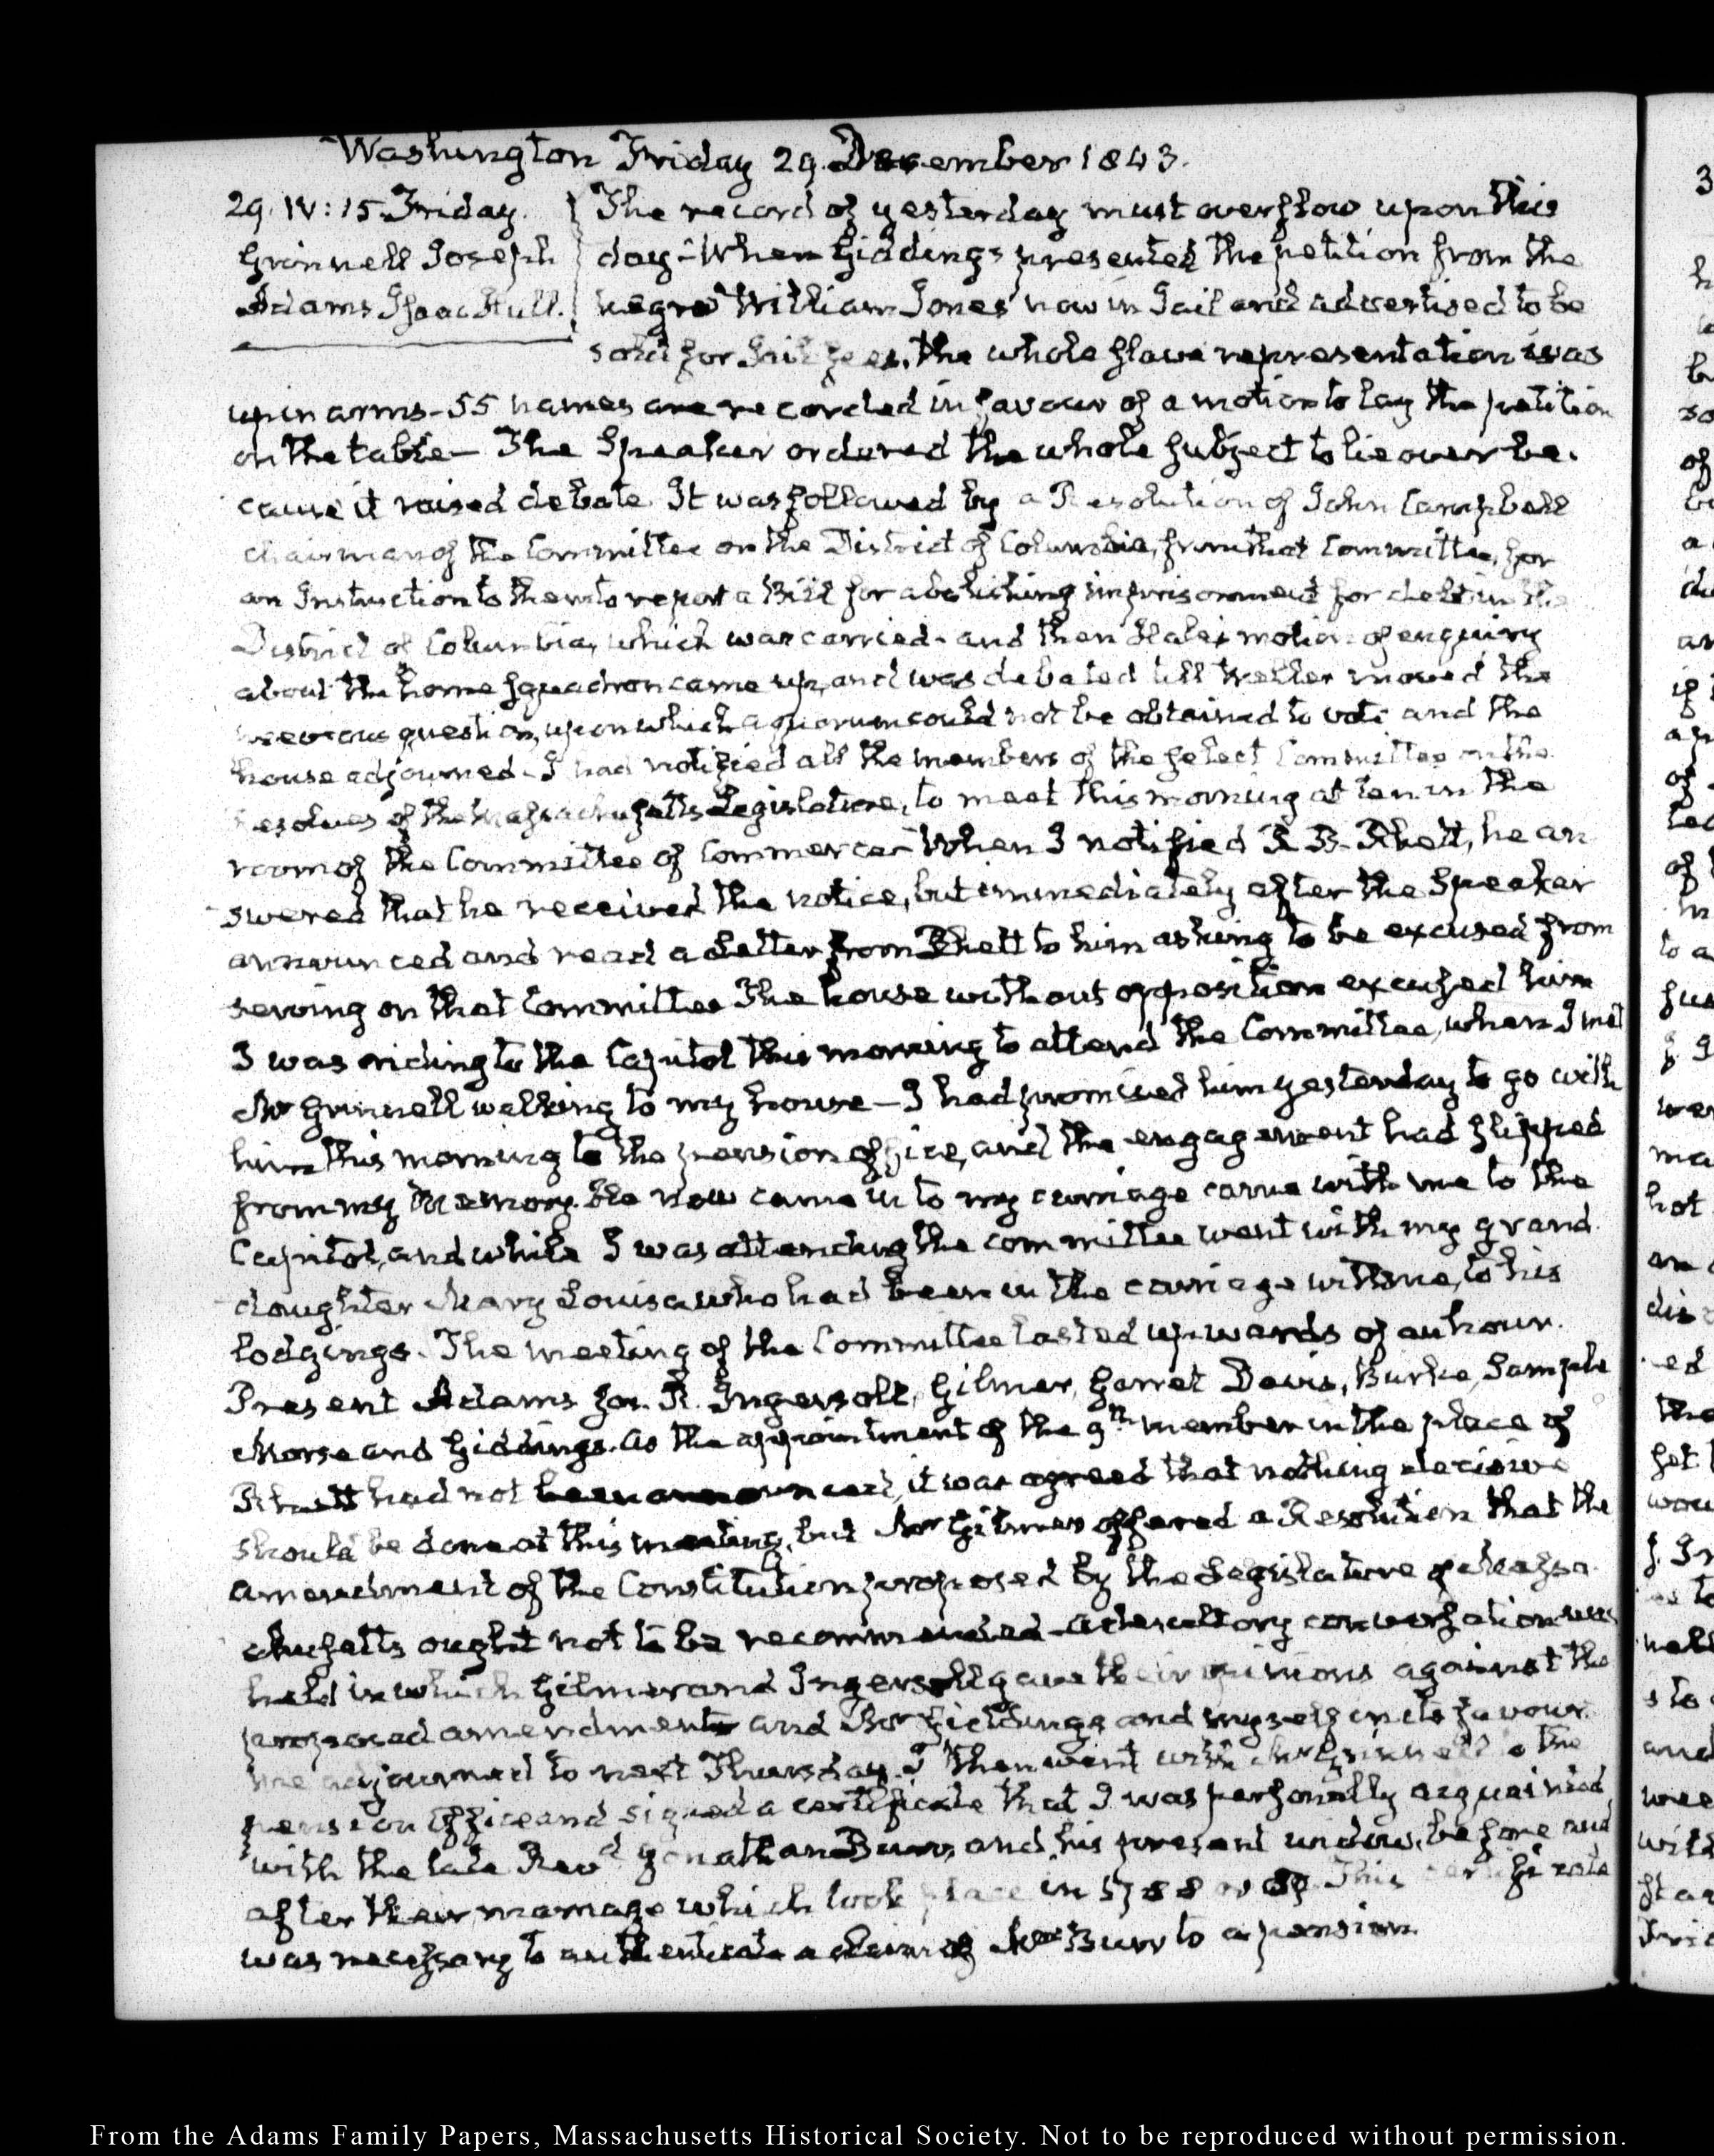 Washington Friday 29. December 1843.
29. IV:15. Friday.
Grinnell Joseph
Adams Isaac Hull.
The record of yesterday must overflow upon this
day - When Giddings presented the petition from the
negro William Jones now in Jail and advertised to be
sold for Jail fees, the whole slave representation was
up in arms - 55 names are recorded in favour of a motion to lay the petition
on the table - The Speaker ordered the whole subject to lie over be-
cause it raised debate. It was followed by a Resolution of John Campbell
chairman of the Committee on the District of Columbia, from that Committee, for
an Instruction to them to report a Bill for abolishing imprisonment for debt in the
District of Columbia, which was carried - and then Hale's motion of enquiry
about the home squadron came up, and was debated till Weller moved the
previous question, upon which a quorum could not be obtained to vote and the
house adjourned - I had notified all the members of the select Committee on the
resolves of the Massachusetts Legislature, to meet this morning at ten in the
room of the Committee of Commerce - When I notified R. B. Rhett, he an-
swered that he received the notice, but immediately after the Speaker
announced and read a Letter from Rhett to him asking to be excused from
serving on that Committee The house without opposition excused him
I was riding to the Capitol this morning to attend the Committee, when I met
Mr Grinnell walking to my house - I had promised him yesterday to go with
him this morning to the pension office, and the engagement had slipped
from my memory. He now came in to my carriage came with me to the
Capitol, and while I was attending the committee went with my grand-
daughter Mary Louisa who had been in the carriage with me, to his
lodgings. The meeting of the Committee lasted upwards of an hour.
Present Adams Jos. R. Ingersoll, Gilmer, Garret Davis, Burke, Sample
Morse and Giddings. As the appointment of the 9th member in the place of
Rhett had not been announced, it was agreed that nothing decisive
should be done at this meeting, but Mr Gilmer offered a Resolution that the
amendment of the Constitution proposed by the Legislature of Massa-
chusetts ought not to be recommended - a desultory conversation was
held in which Gilmer and Ingersoll gave their opinions against the
proposed amendment and Mr Giddings and myself in its favour.
We adjourned to next Thursday. I then went with Mr Grinnell to the
pension Office and signed a certificate that I was personally acquainted
with the late Revd Jonathan Burr, and his present widow, before and
after their marriage which took place in 1788 or 89. This certificate
was necessary to authenticate a claim of Mrs Burr to a pension.
From the Adams Family Papers, Massachusetts Historical Society. Not to be reproduced without permission.